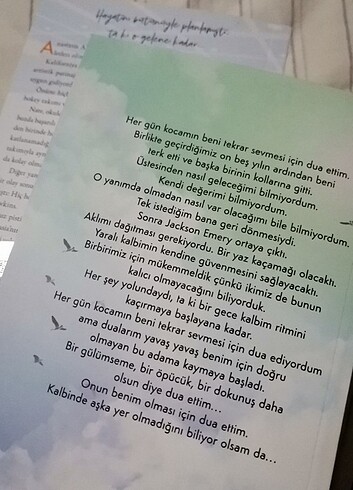 Hayatını bütünüyle planlamıştı,
ta ki o gelene kadar.
Her gün kocamın beni tekrar sevmesi için dua ettim.
Birlikte geçirdiğimiz on beş yılın ardından beni
terk etti ve başka birinin kollarına gitti.
Üstesinden nasıl geleceğimi bilmiyordum.
Kendi değerimi bilmiyordum.
O yanımda olmadan nasıl var olacağımı bile bilmiyordum.
Tek istediğim bana geri dönmesiydi.
Sonra Jackson Emery ortaya çıktı.
Aklımı dağıtması gerekiyordu. Bir yaz kaçamağı olacaktı.
Yaralı kalbimin kendine güvenmesini sağlayacaktı.
Birbirimiz için mükemmeldik çünkü ikimiz de bunun
kalıcı olmayacağını biliyorduk.
Her şey yolundaydı, ta ki bir gece kalbim ritmini
kaçırmaya başlayana kadar.
Her gün kocamın beni tekrar sevmesi için dua ediyordum
ama dualarım yavaş yavaş benim için doğru
olmayan bu adama kaymaya başladı.
Bir gülümseme, bir öpücük, bir dokunuş daha
olsun diye dua ettim...
Onun benim olması için dua ettim.
Kalbinde aşka yer olmadığını biliyor olsam da...